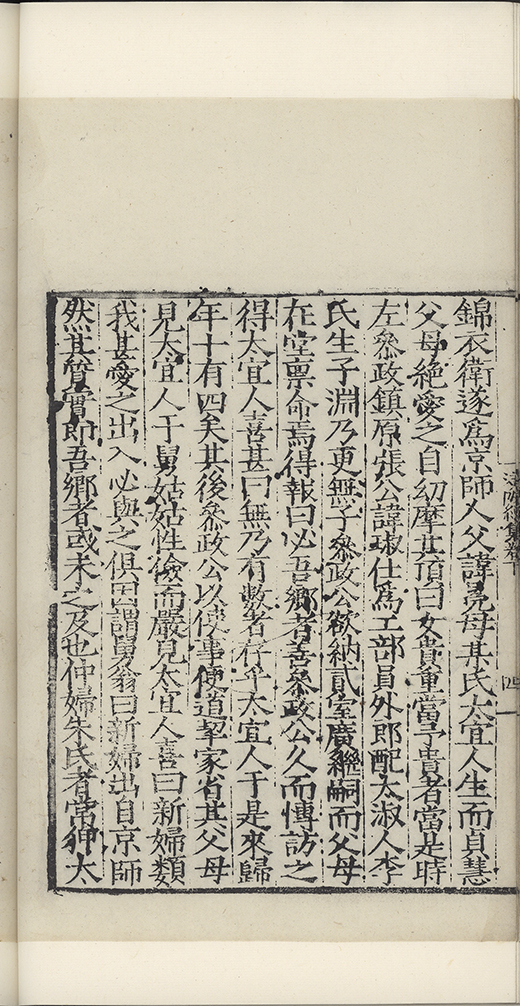 錦衣衛遂爲京師人父諱堯母某氏太宜人生而貞慧
父母絶愛之自幼摩其頂曰女貴重當予貴者當是時
左叅政鎮原張公諱琡仕爲工部員外郎配太淑人李
氏生子淵乃更無子叅政公欲納貳室廣繼嗣而父母
在堂禀命焉得報曰必吾鄉者善叅政公久而愽訪之
得太宜人喜甚曰無乃有數者存乎太宜人于是來歸
年十有四矣其後叅政公以使事便道挈家省其父母
見太宜人于舅姑姑性儉而嚴見太宜人喜曰新婦類
我甚愛之出入必與之俱因謂舅翁曰新婦出自京師
然其質實即吾鄉者或未之及也仲婦朱氏者常狎太
集卷下
四